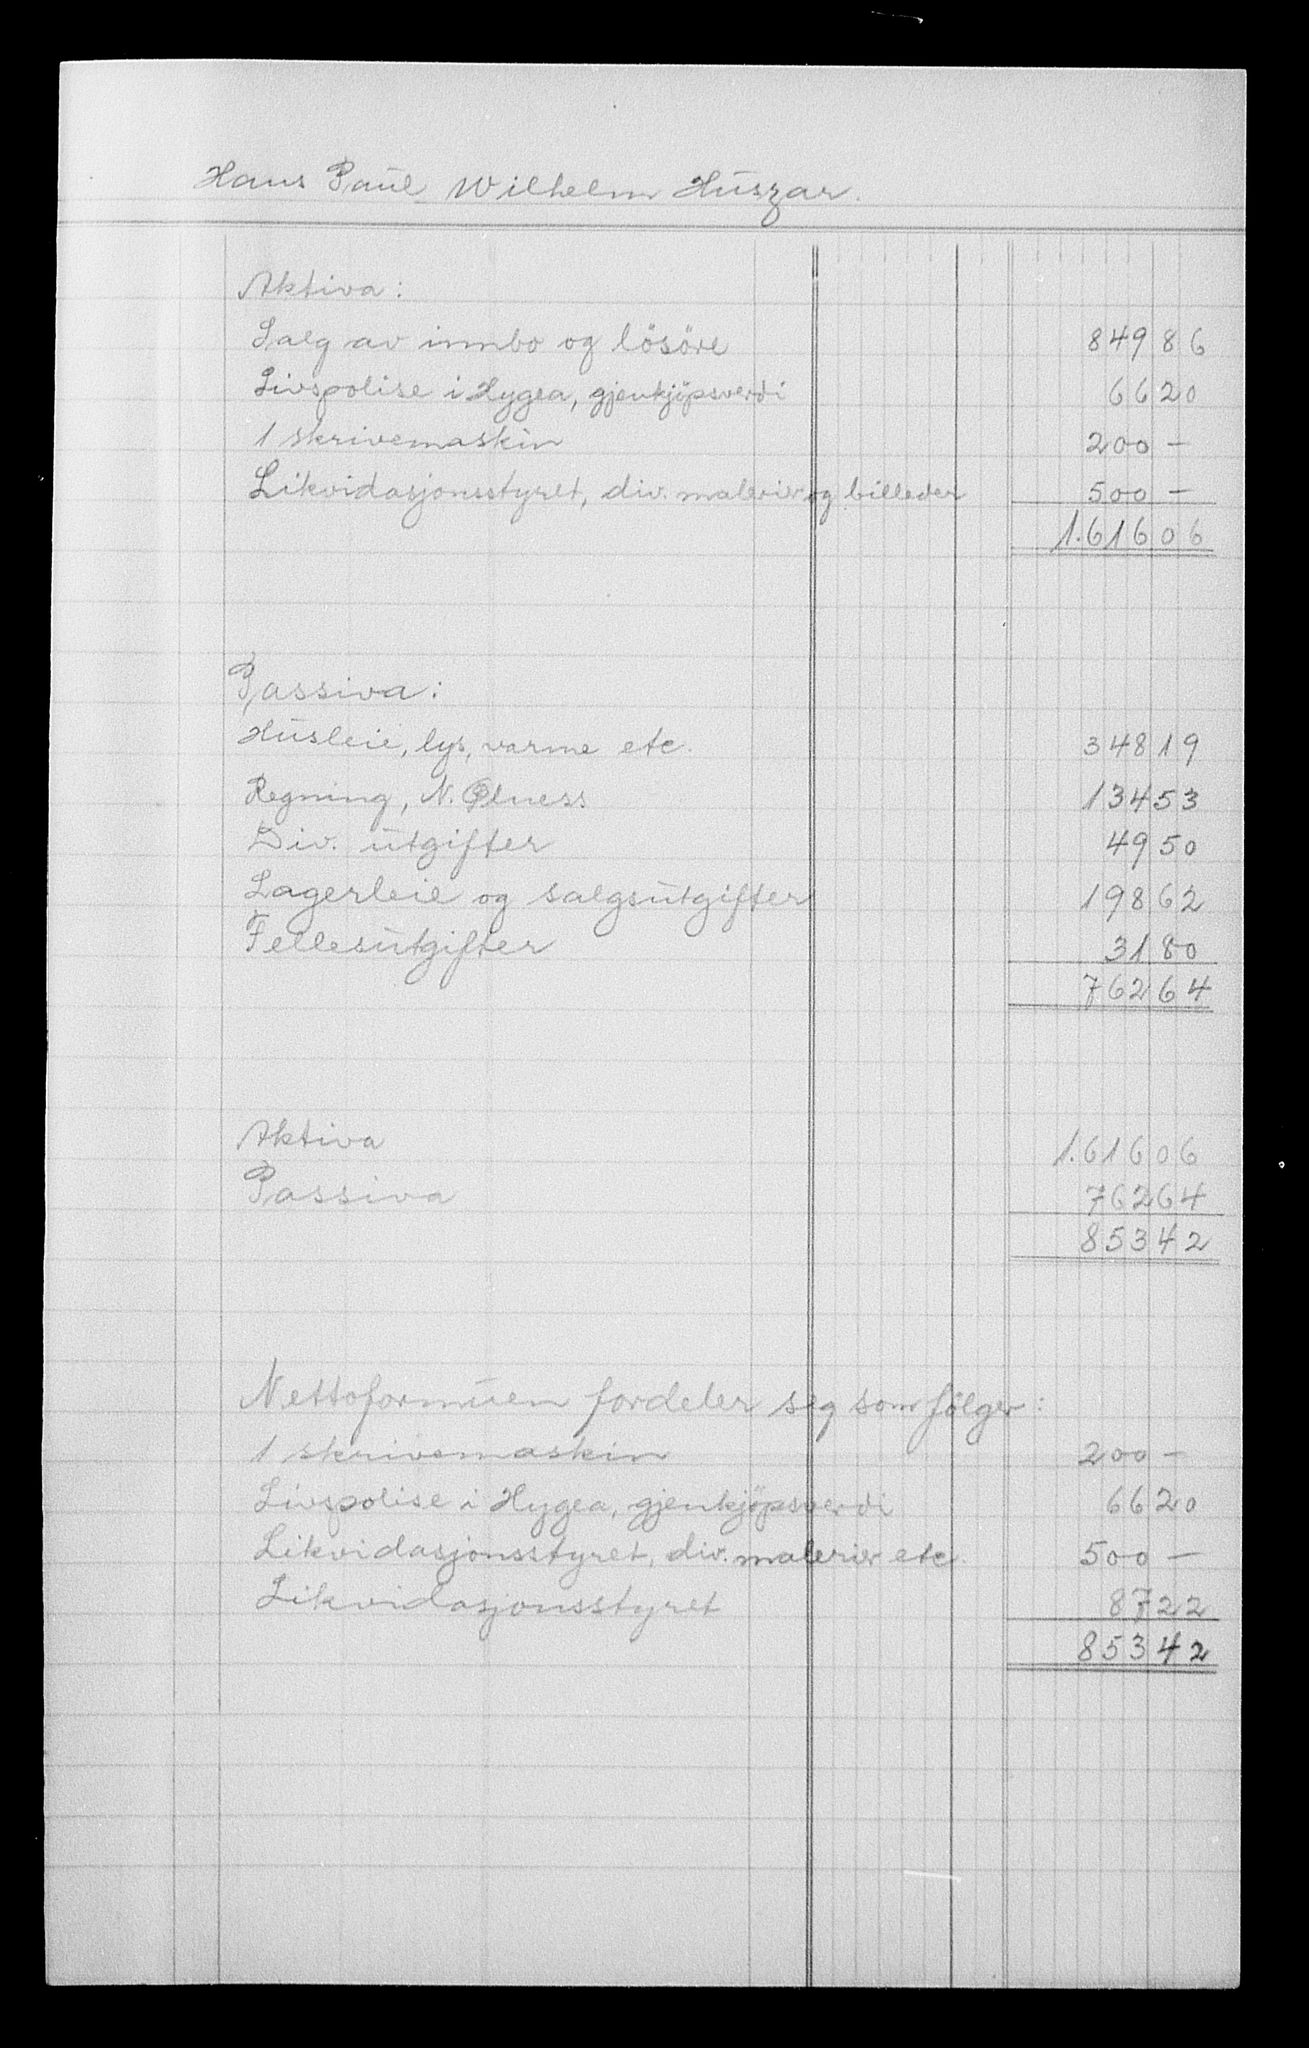 Hans Paul Wilhelm Huszar.
Aktiva:
Salg av innbo og lösöre 849 86
Livspolise i Hygea, gjenkjöpsverdi 66 20
1 skrivemaskin 200 -
Likvidasjonsstyret, div. malerier og billeder 500 -
1.616 06
Passiva:
Husleie, lys, varme etc. 348 19
Regning, N. 134 53
Div. utgifter 49 50
Lagerleie og salgsutgifter 198 62
Fellesutgifter 31 80
762 64
Aktiva 1.616 06
Passiva 762 64
853 42
Nettoformuen fordeler seg som fölger:
1 skrivemaskin 200 -
Livspolise i Hygea, gjenkjöpsverdi 66 20
Likvidasjonsstyret, div. malerier etc. 500 -
Likvidasjonsstyret 87 22
853 42